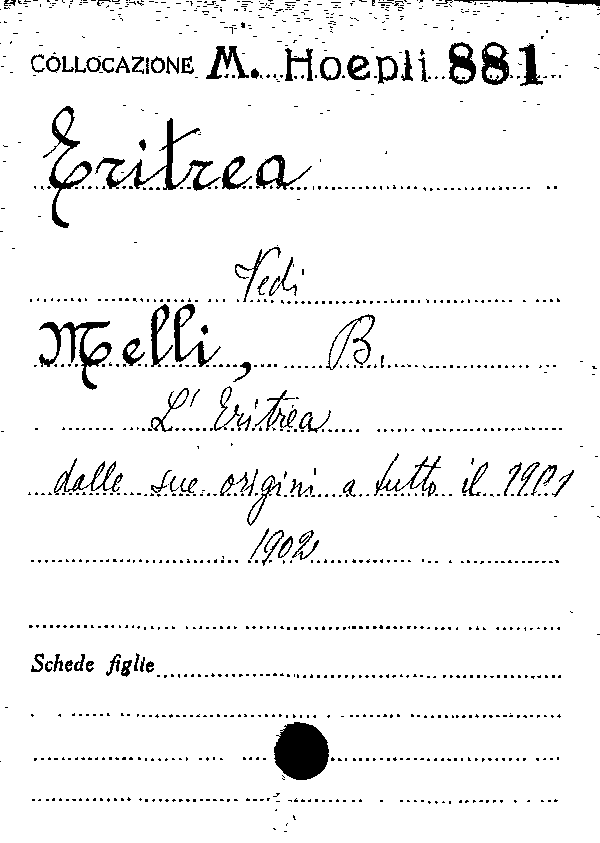 COLLOCAZIONE M. Hoepli 881
Eritrea
Vedi
Melli, B.
L' Eritrea
dalle sue origini a tutto il 1901
1902
Schede figlie